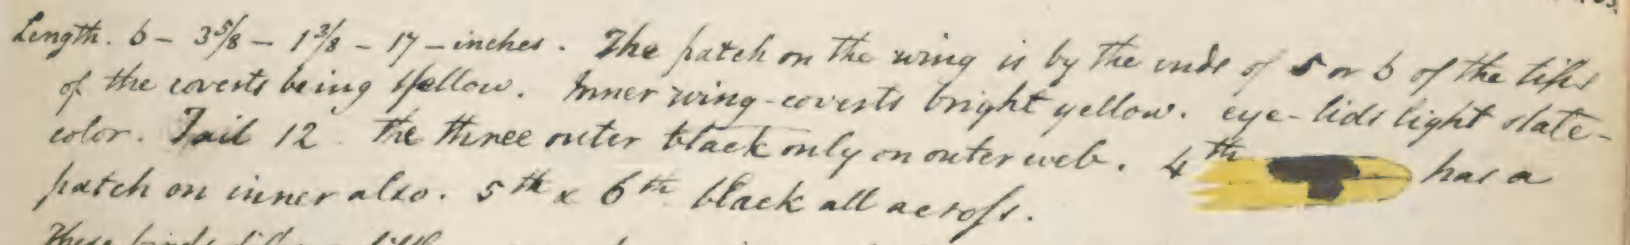 Length. 6 - 3⅝ - 1⅜ - 17 - inches. The patch on the wing is by the ends of 5 or 6 of the tips
of the coverts being yellow. Inner wing-coverts bright yellow. eye-lids light slate-
color. Tail 12. The three outer black only on outer web. 4th has a
patch on inner also. 5th & 6th black all across.
These birds